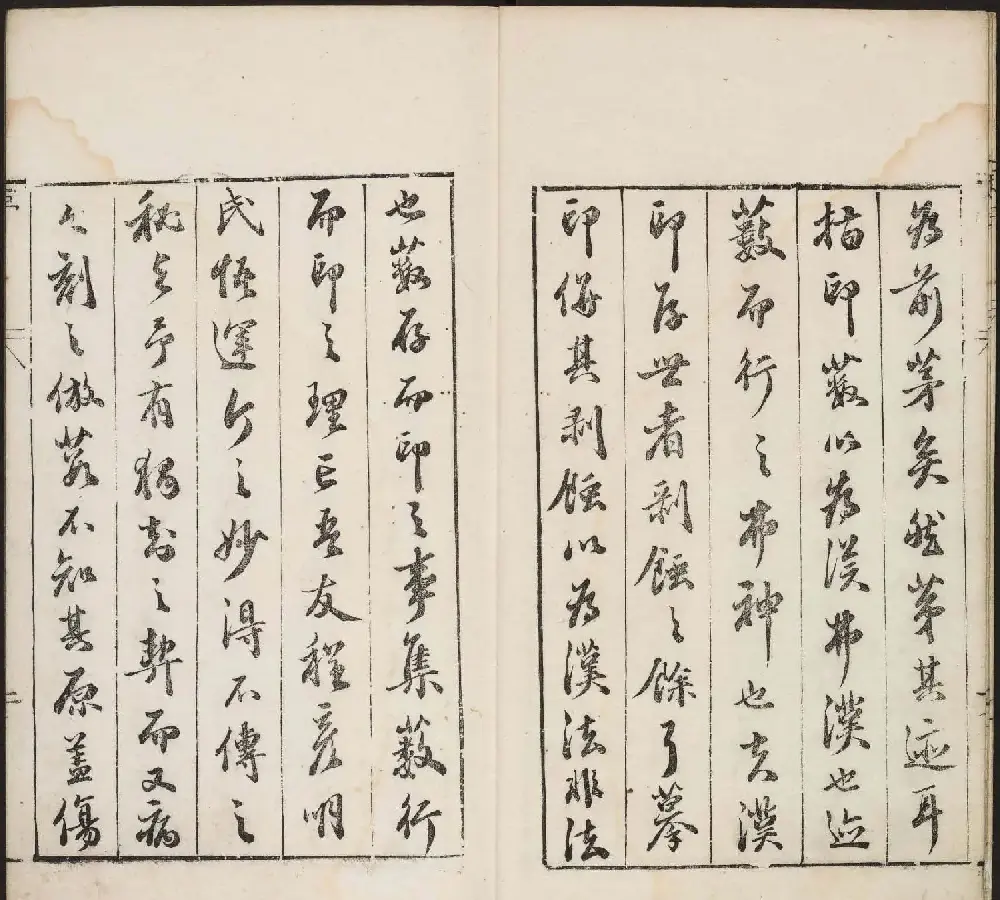 為前茅矣然茅其迹耳
指印藪以為漢弗漢也迹
藪而行之弗神也夫漢
印存世者剥蝕之餘摹
印併其剥蝕以為漢法非法
也藪存而印之事集藪行
而印之理亡吾友程彦明
氏悟運斤之妙得不傳之
秘与予有獨之契而又病
刻之倣不知其原蓋傷